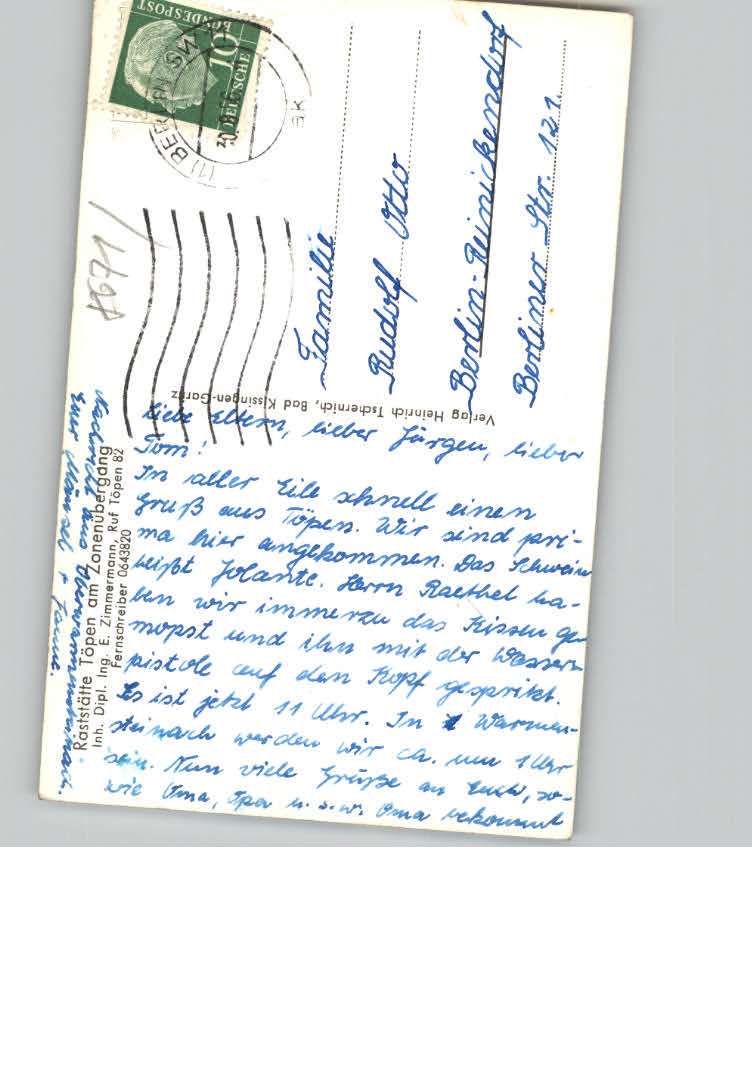 Liebe Eltern, lieber Jürgen, lieber
Tom!
In aller Eile schnell einen
Gruß aus Töpen. Wir sind pri-
ma hier angekommen. Das Schwein
heißt Jolante. Herrn Raethel ha-
ben wir immerzu das Kissen ge-
mopst und ihn mit der Wasser-
pistole auf den Kopf gespritzt.
Es ist jetzt 11 Uhr. In Warmen-
steinach werden wir ca. um 1 Uhr
sein. Nun viele Grüße an Euch, so-
wie Oma, Opa u. s. w. Oma bekommt
Nachricht aus Oberwarmensteinach.
Eure
Raststätte Töpen am Zonenübergang
Inh. Dipl. Ing. E. Zimmermann, Ruf Töpen 82
Fernschreiber 0643820
Verlag Heinrich Tschernich, Bad Kissingen-Garitz
Familie
Rudolf Otto
Berlin-Reinickendorf
Berliner Str. 121
10
DEUTSCHE
BUNDESPOST
(1) BERLIN SW
ak